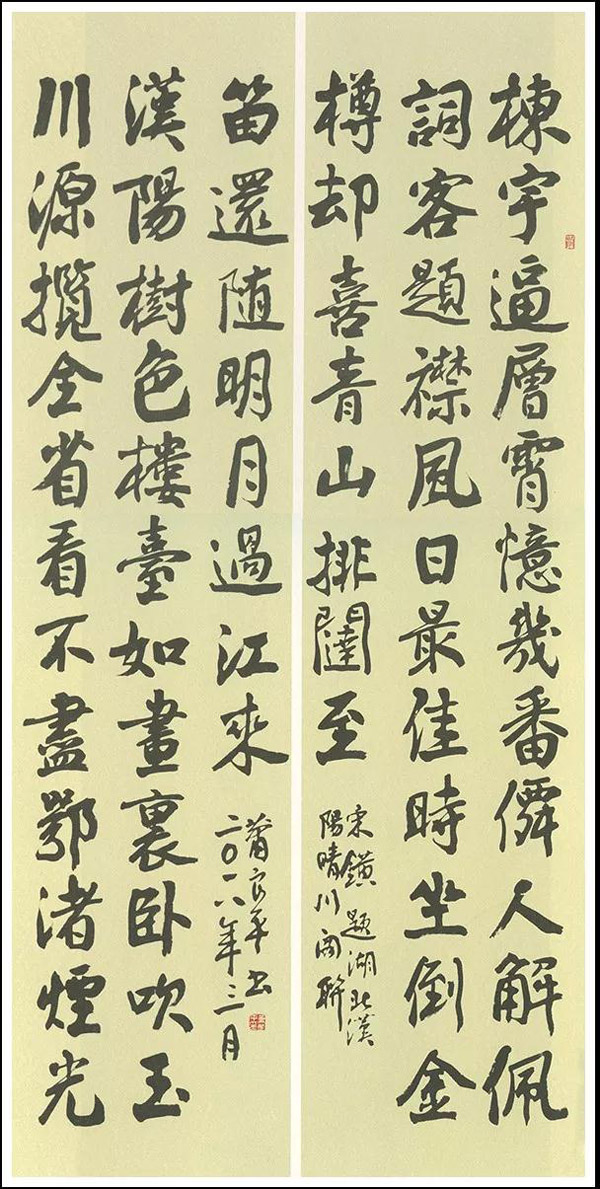 棟宇逼層霄憶幾番僊人解佩
詞客題襟風日最佳時坐倒金
樽却喜青山排闥至
宋鐄題湖北漢
陽晴川閣聯
川源攬全省看不盡鄂渚煙光
漢陽樹色樓臺如畫裏卧吹玉
笛還随明月過江來
二〇一八年三月